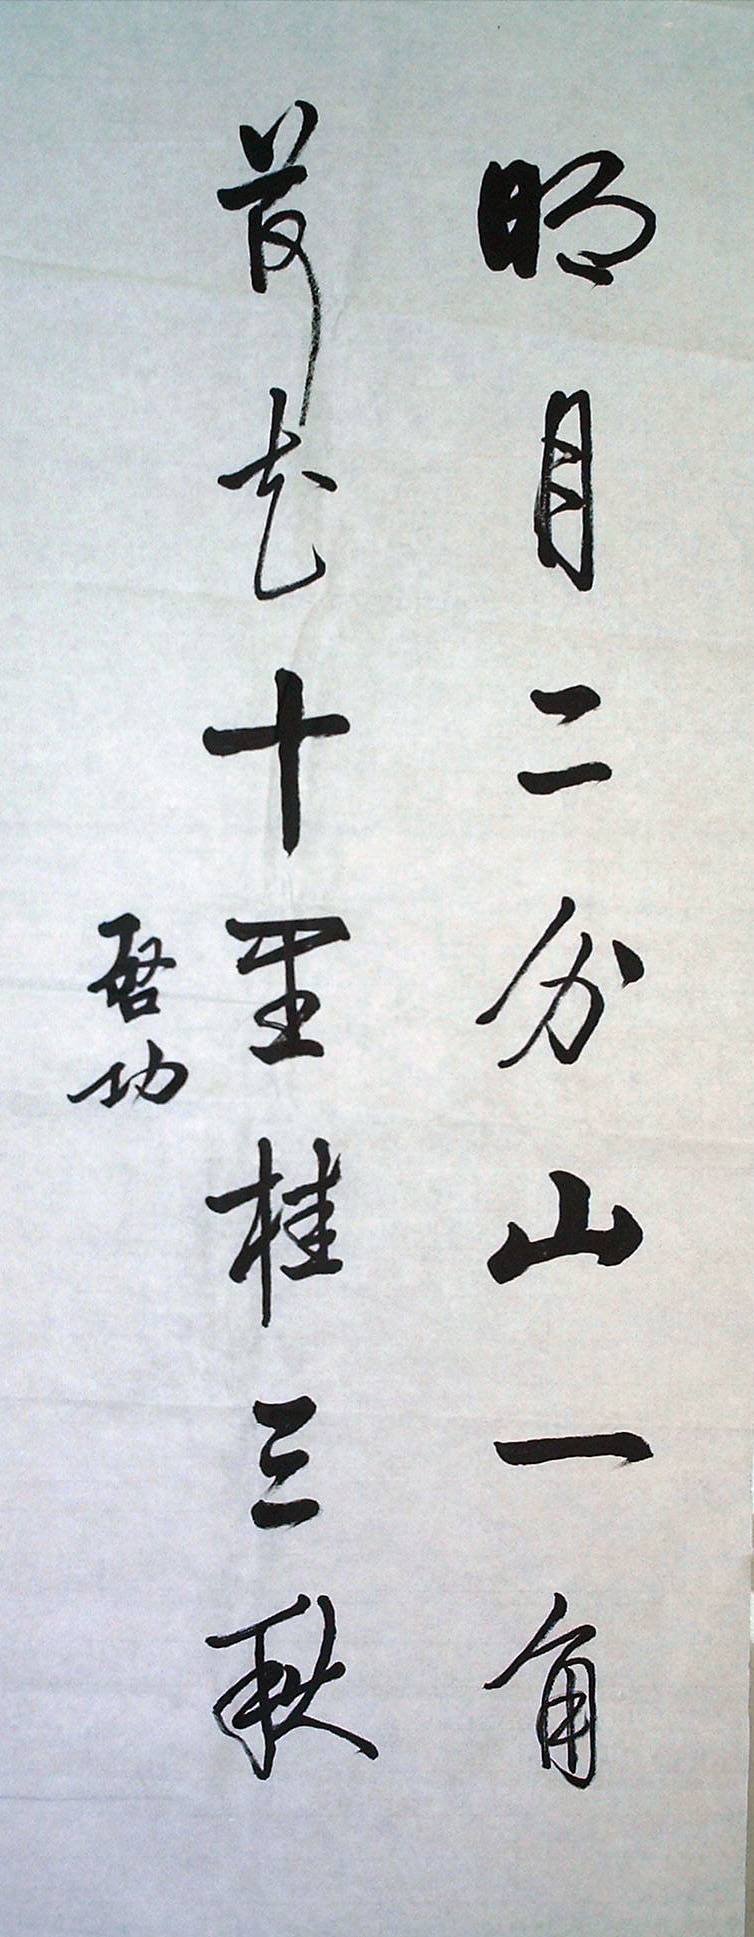 明月二分山一角
荷花十里桂三秋
啓功